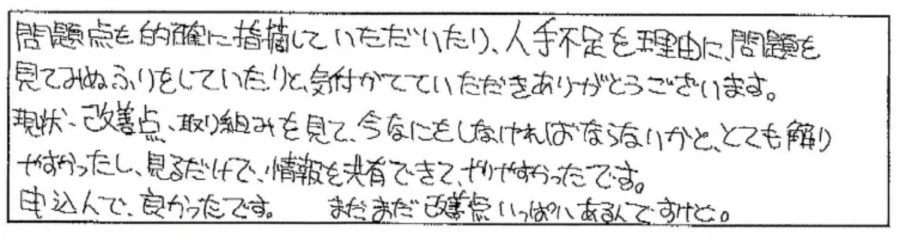 問題点を的確に指摘していただいたり、人手不足を理由に、問題を
見てみぬふりをしていたりと、気付がてていただきありがとうございます。
現状、改善点、取り組みを見て、今なにをしなければならないかと、とても解り
やすかったし、見るだけで、情報を共有できて、やりやすかったです。
申込んで、良かったです。 まだまだ改善点いっぱいあるんですけど。